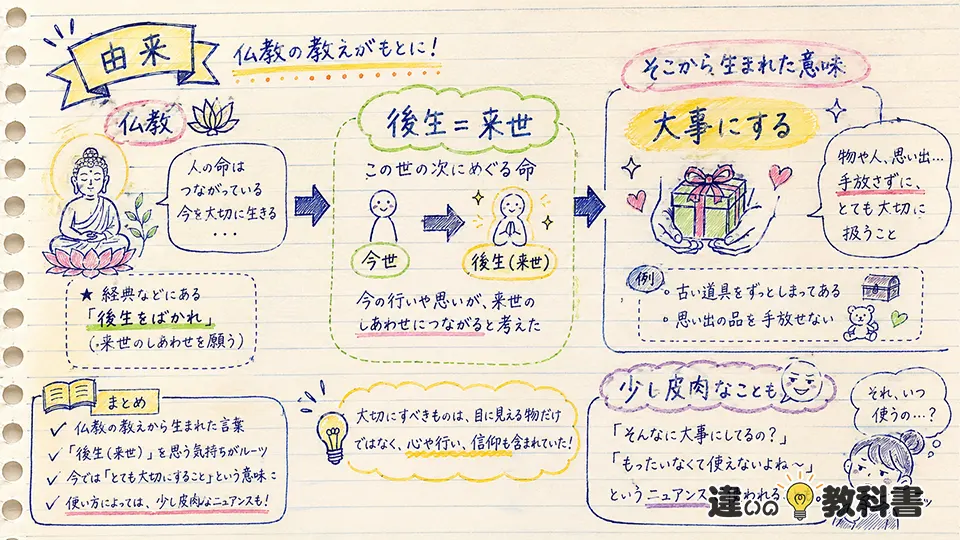 由来
仏教の教えがもとに!
仏教
人の命は
つながっている
今を大切に生きる
・・・
★ 経典などにある
「後生をばかれ」
(・来世のしあわせを願う)
後生=来世
この世の次にめぐる命
今世
後生(来世)
今の行いや思いが、来世の
しあわせにつながると考えた
そこから生まれた意味
大事にする
物や人、思い出…
手放さずに、
とても大切に
扱うこと
例
○ 古い道具をずっとしまってある
○ 思い出の品を手放せない
まとめ
✓ 仏教の教えから生まれた言葉
✓ 「後生(来世)」を思う気持ちがルーツ
✓ 今では「とても大切にすること」という意味に
✓ 使い方によっては、少し皮肉なニュアンスも!
大切にすべきものは、目に見える物だけ
ではなく、心や行い、信仰も含まれていた!
少し皮肉なことも
「そんなに大事にしてるの?」
「もったいなくて使えないよね〜」
というニュアンス
われる
それ、いつ
使うの…?
違いの教科書